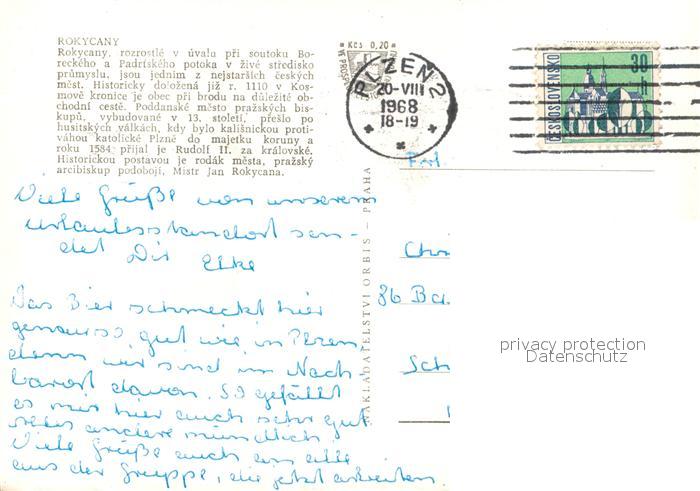 ROKYCANY
Rokycany, rozrostlé v úvalu při soutoku Bo-
reckého a Padrťského potoka v živé středisko
průmyslu, jsou jedním z nejstarších českých
měst. Historicky doložená již r. 1110 v Kos-
mově kronice je obec při brodu na důležité ob-
chodní cestě. Poddanské město pražských bis-
kupů, vybudované v 13. století, přešlo po
husitských válkách, kdy bylo kališnickou proti-
váhou katolické Plzně do majetku koruny a
roku 1584 přijal je Rudolf II. za královské.
Historickou postavou je rodák města, pražský
arcibiskup podobojí, Mistr Jan Rokycana.
Viele Grüße von unserem
Urlaubsstandort sen-
det Dir Elke
Das Bier schmeckt hier
genauso gut wie in Pilsen,
denn wir sind im Nach-
barort davon. So gefällt
es mir hier auch sehr gut
alles andere mündlich.
Viele Grüße auch an alle
aus der Gruppe, die jetzt arbeiten.
Kčs 0,20
NAKLADATELSTVÍ ORBIS - PRAHA
PLZEŇ 2
20-VIII
1968
18-19
ČESKOSLOVENSKO
30 h
Frl.
Chr
86 Ba
Sch
privacy protection
Datenschutz